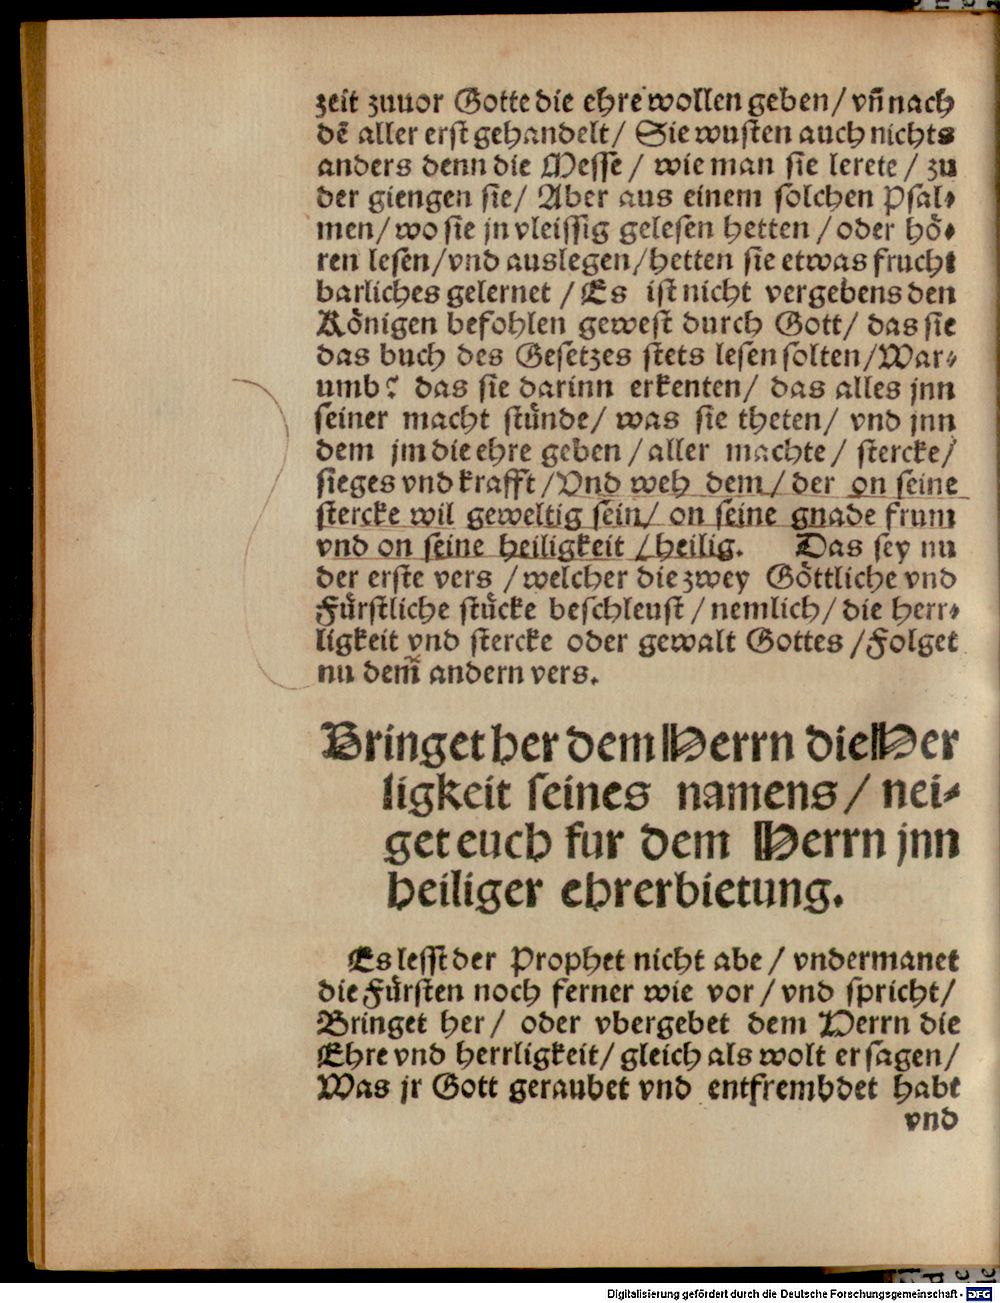 zeit zuuor Gotte die ehre wollen geben / vn̄ nach
dē aller erst gehandelt / Sie wusten auch nichts
anders denn die Messe / wie man sie lerete / zu
der giengen sie / Aber aus einem solchen Psal⸗
men / wo sie jn vleissig gelesen hetten / oder hoͤ⸗
ren lesen / vnd auslegen / hetten sie etwas frucht
barliches gelernet / Es ist nicht vergebens den
Koͤnigen befohlen gewest durch Gott / das sie
das buch des Gesetzes stets lesen solten / War⸗
umb? das sie darinn erkenten / das alles jnn
seiner macht stuͤnde / was sie theten / vnd jnn
dem jm die ehre geben / aller machte / stercke /
sieges vnd krafft / Vnd weh dem / der on seine
stercke wil geweltig sein / on seine gnade frum
vnd on seine heiligkeit / heilig. Das sey nu
der erste vers / welcher die zwey Goͤttliche vnd
Fuͤrstliche stuͤcke beschleust / nemlich / die herr⸗
ligkeit vnd stercke oder gewalt Gottes / Folget
nu dem̄ andern vers.
Bringet her dem Herrn die Her
ligkeit seines namens / nei⸗
get euch fur dem Herrn jnn
heiliger ehrerbietung.
Es lesst der Prophet nicht abe / vndermanet
die Fuͤrsten noch ferner wie vor / vnd spricht /
Bringet her / oder vbergebet dem Herrn die
Ehre vnd herrligkeit / gleich als wolt er sagen /
Was jr Gott geraubet vnd entfrembdet habt
vnd
Digitalisierung gefördert durch die Deutsche Forschungsgemeinschaft - DFG